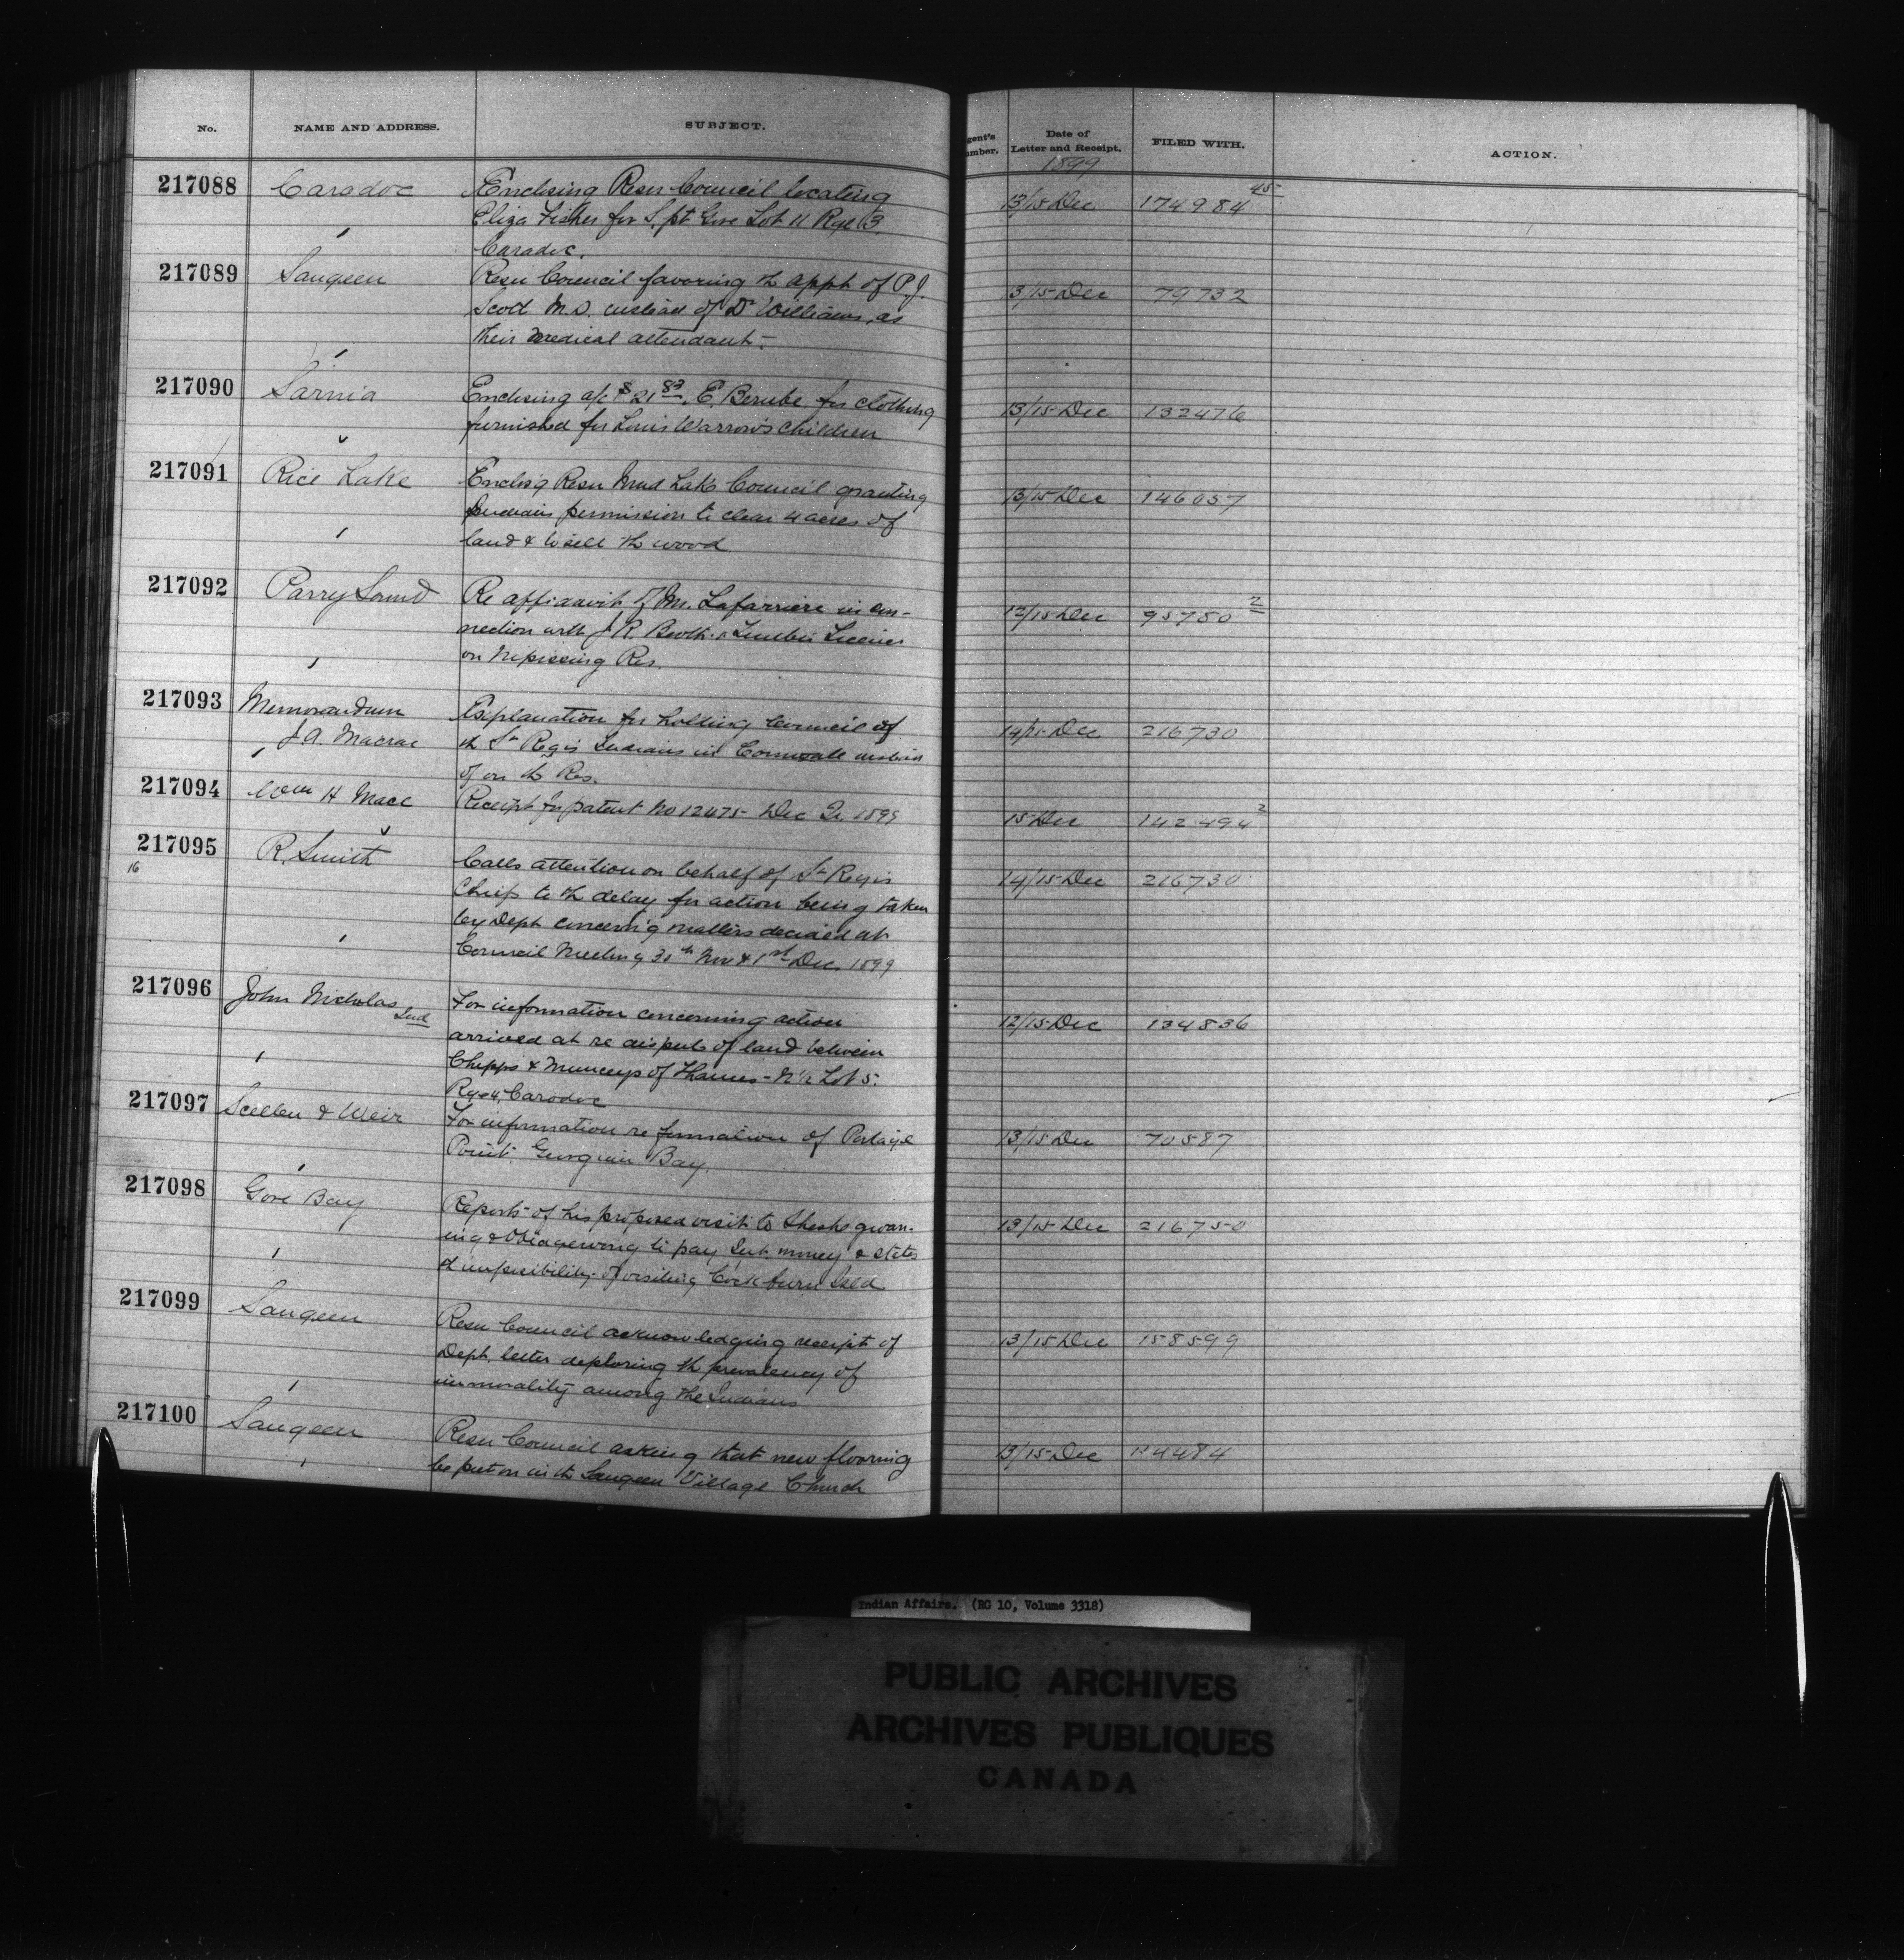 No. NAME AND ADDRESS. SUBJECT. gent's umber. Date of Letter and Receipt. FILED WITH. ACTION.
1899
217088 Caradoc Enclosing Resn Council locating 13/15 Dec 174984 45
Eliza Fisher for S. pt Gore Lot 11 Rge B.
Caradoc.
217089 Saugeen Resn Council favoring th appt of P.J. 13/15 Dec 79732
Scott M.D. instead of Dr Williams, as
their medical attendant.
217090 Sarnia Enclosing a/c $21 83. E. Berube for clothing 13/15 Dec 132476
furnished for Louis Warrow's children
217091 Rice Lake Enclos'g Resn Mud Lake Council granting 13/15 Dec 146057
Indians permission to clear 4 acres of
land & to sell th wood
217092 Parry Sound Re affidavit of M. Lafarriere in con- 12/15 Dec 95750 2
nection with J.R. Booth's Timber License
on Nipissing Res.
217093 Memorandum Explanation for holding Council of 14/15 Dec 216730
J.A. Macrae th St Regis Indians in Cornwall instead
of on th Res.
217094 Wm H Mace Receipt for patent No 12475 Dec 1899 15 Dec 142494 2
217095 R. Smith Calls attention on behalf of St Regis 14/15 Dec 216730
16 Chiefs to th delay for action being taken
by Dept concern'g matters decided at
Council Meeting 30th Nov & 1st Dec. 1899
217096 John Nicholas For information concerning action 12/15 Dec 134836
Ind arrived at re dispute of land between
Chipps & Munceys of Thames - N½ Lot 5.
Rge 4, Caradoc
217097 & Weir For information re formation of Portage 13/15 Dec 70587
Point. Georgian Bay.
217098 Gore Bay Reports of his proposed visit to Sheshegwan- 13/15 Dec 216750
ing & Obidgewong to pay Int. money & states
th impossibility of visiting Cockburn Isld
217099 Saugeen Resn Council acknowledging receipt of 13/15 Dec 158599
Dept. letter deploring th prevalency of
immorality among the Indians
217100 Saugeen Resn Council asking that new flooring 13/15 Dec 4484
be put on in th Saugeen Village Church
Indian Affairs. (RG 10, Volume 3318)
PUBLIC ARCHIVES
ARCHIVES PUBLIQUES
CANADA